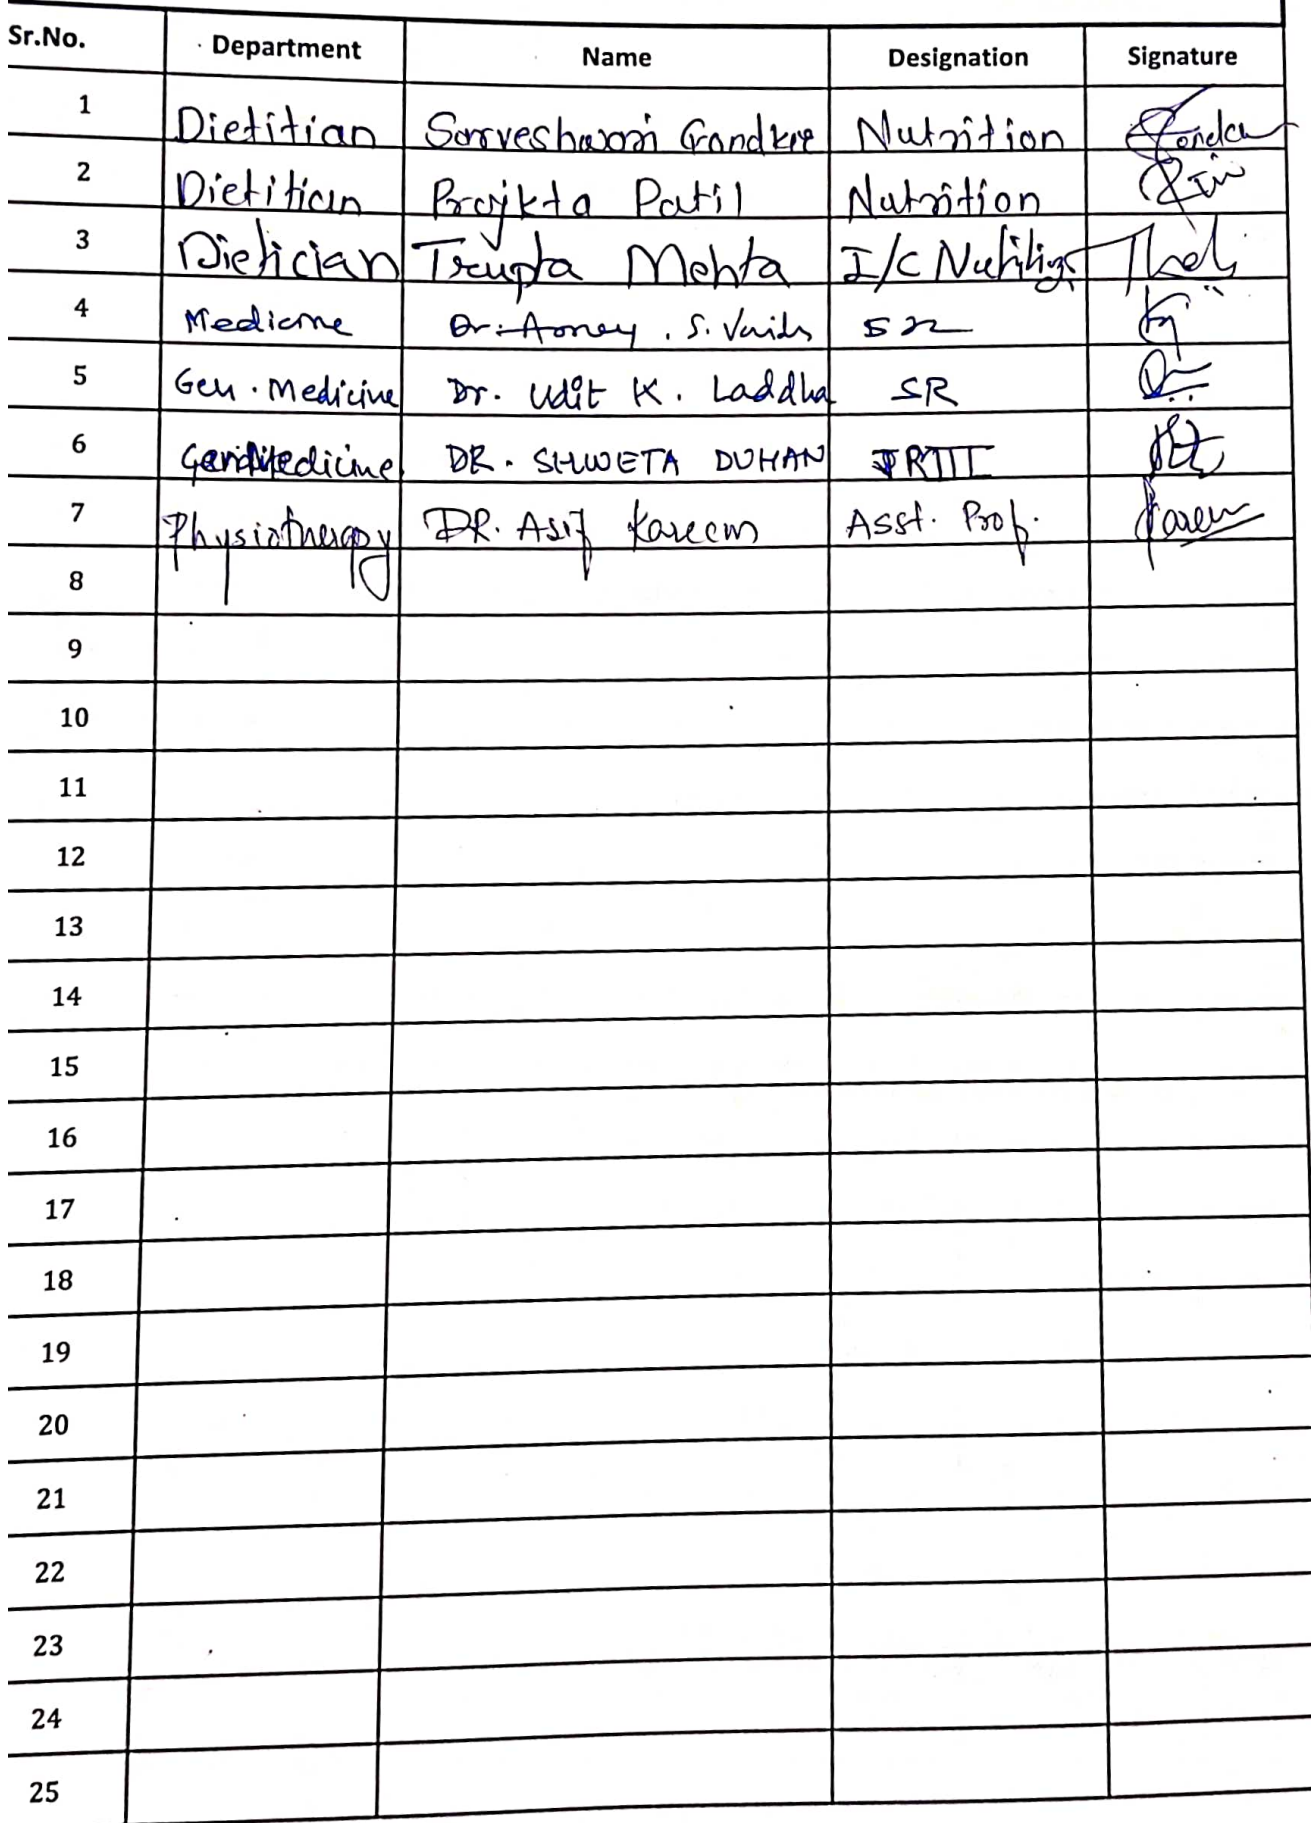 Sr.No. Department Name Designation Signature
1 Dietitian Sarveshwari Nutrition
2 Dietitian Prajkta Patil Nutrition
3 Dietician Trupta Mehta I/C
4 Medicine Dr. S.
5 Gen. Medicine Dr. Udit K. Laddha SR
6 DR. SHWETA DUHAN JRIII
7 Physiotherapy DR. Asif Kareem Asst. Prof. Kareem
8
9
10
11
12
13
14
15
16
17
18
19
20
21
22
23
24
25